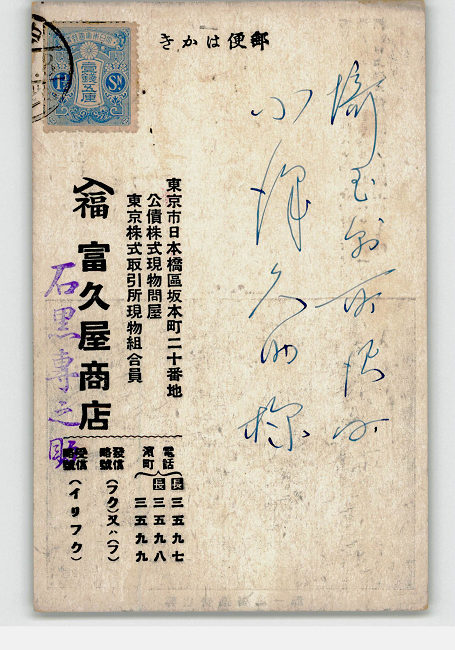 きかは便郵
埼玉縣所沢町
小澤久助様
東京市日本橋區坂本町二十番地
公債株式現物問屋
東京株式取引所現物組合員
入福 富久屋商店
石黒専之助
電話
濱町
長 三五九七
長 三五九八
三五九九
發信略號 (フク)又ハ(フ)
受信略號 (イリフク)
壹錢五厘
1½ Sn